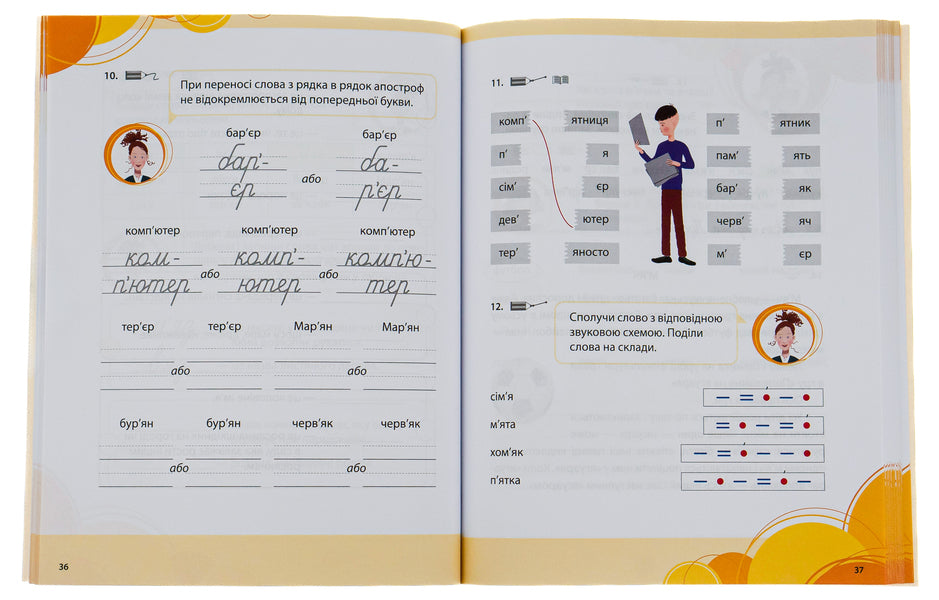 10.
При переносі слова з рядка в рядок апостроф
не відокремлюється від попередньої букви.
бар’єр бар’єр
бар’- або ба-
єр р’єр
комп’ютер комп’ютер комп’ютер
ком- або комп’- або комп’ю-
п’ютер ютер тер
тер’єр тер’єр Мар’ян Мар’ян
або або
бур’ян бур’ян черв’як черв’як
або або
36
11.
комп’ ятниця п’ ятник
п’ я пам’ ять
сім’ єр бар’ як
дев’ ютер черв’ яч
тер’ яносто м’ єр
12.
Сполучи слово з відповідною
звуковою схемою. Поділи
слова на склади.
сім’я
м’ята
хом’як
п’ятка
37